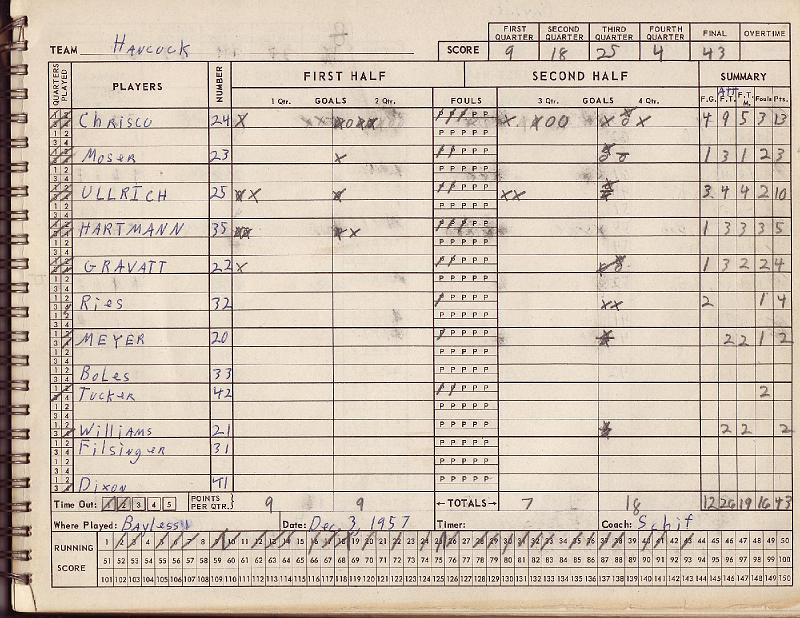 FIRST QUARTER SECOND QUARTER THIRD QUARTER FOURTH QUARTER FINAL OVERTIME
TEAM Hancock SCORE 9 18 25 4 43
QUARTERS PLAYED PLAYERS NUMBER FIRST HALF SECOND HALF SUMMARY
1 Qtr. GOALS 2 Qtr. FOULS 3 Qtr. GOALS 4 Qtr. F.G. ATT F.T. F.T.M. Fouls Pts.
Chrisco 24 4 9 5 3 13
Moser 23 1 3 1 2 3
ULLRICH 25 3 4 4 2 10
HARTMANN 35 1 3 3 3 5
GRAVATT 22 1 3 2 2 4
Ries 32 2 1 4
MEYER 20 2 2 1 2
Boles 33
Tucker 42 2
Williams 21 2 2 2
Filsinger 31
Dixon 41
Time Out: 1 2 3 4 5 POINTS PER QTR. 9 9 ←TOTALS→ 7 18 12 26 19 16 43
Where Played: Bayless Date: Dec. 3, 1957 Timer: Coach: Schif
RUNNING SCORE
1 2 3 4 5 6 7 8 9 10 11 12 13 14 15 16 17 18 19 20 21 22 23 24 25 26 27 28 29 30 31 32 33 34 35 36 37 38 39 40 41 42 43 44 45 46 47 48 49 50
51 52 53 54 55 56 57 58 59 60 61 62 63 64 65 66 67 68 69 70 71 72 73 74 75 76 77 78 79 80 81 82 83 84 85 86 87 88 89 90 91 92 93 94 95 96 97 98 99 100
101 102 103 104 105 106 107 108 109 110 111 112 113 114 115 116 117 118 119 120 121 122 123 124 125 126 127 128 129 130 131 132 133 134 135 136 137 138 139 140 141 142 143 144 145 146 147 148 149 150